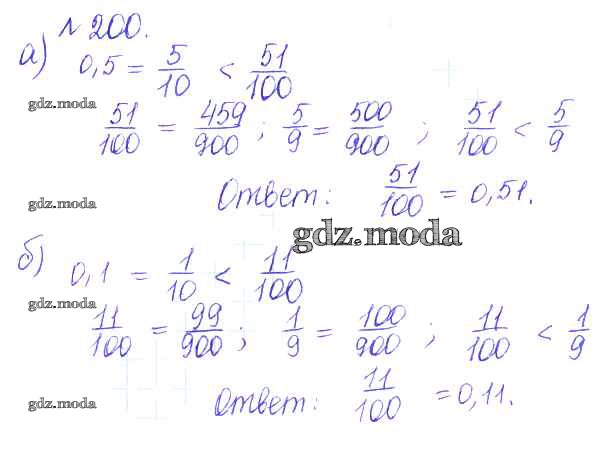 № 200.
а) 0,5 = 5/10 < 51/100
gdz.moda
51/100 = 459/900 ; 5/9 = 500/900 ; 51/100 < 5/9
gdz.moda
Ответ: 51/100 = 0,51.
gdz.moda
б) 0,1 = 1/10 < 11/100
gdz.moda
11/100 = 99/900 ; 1/9 = 100/900 ; 11/100 < 1/9
gdz.moda
Ответ: 11/100 = 0,11.